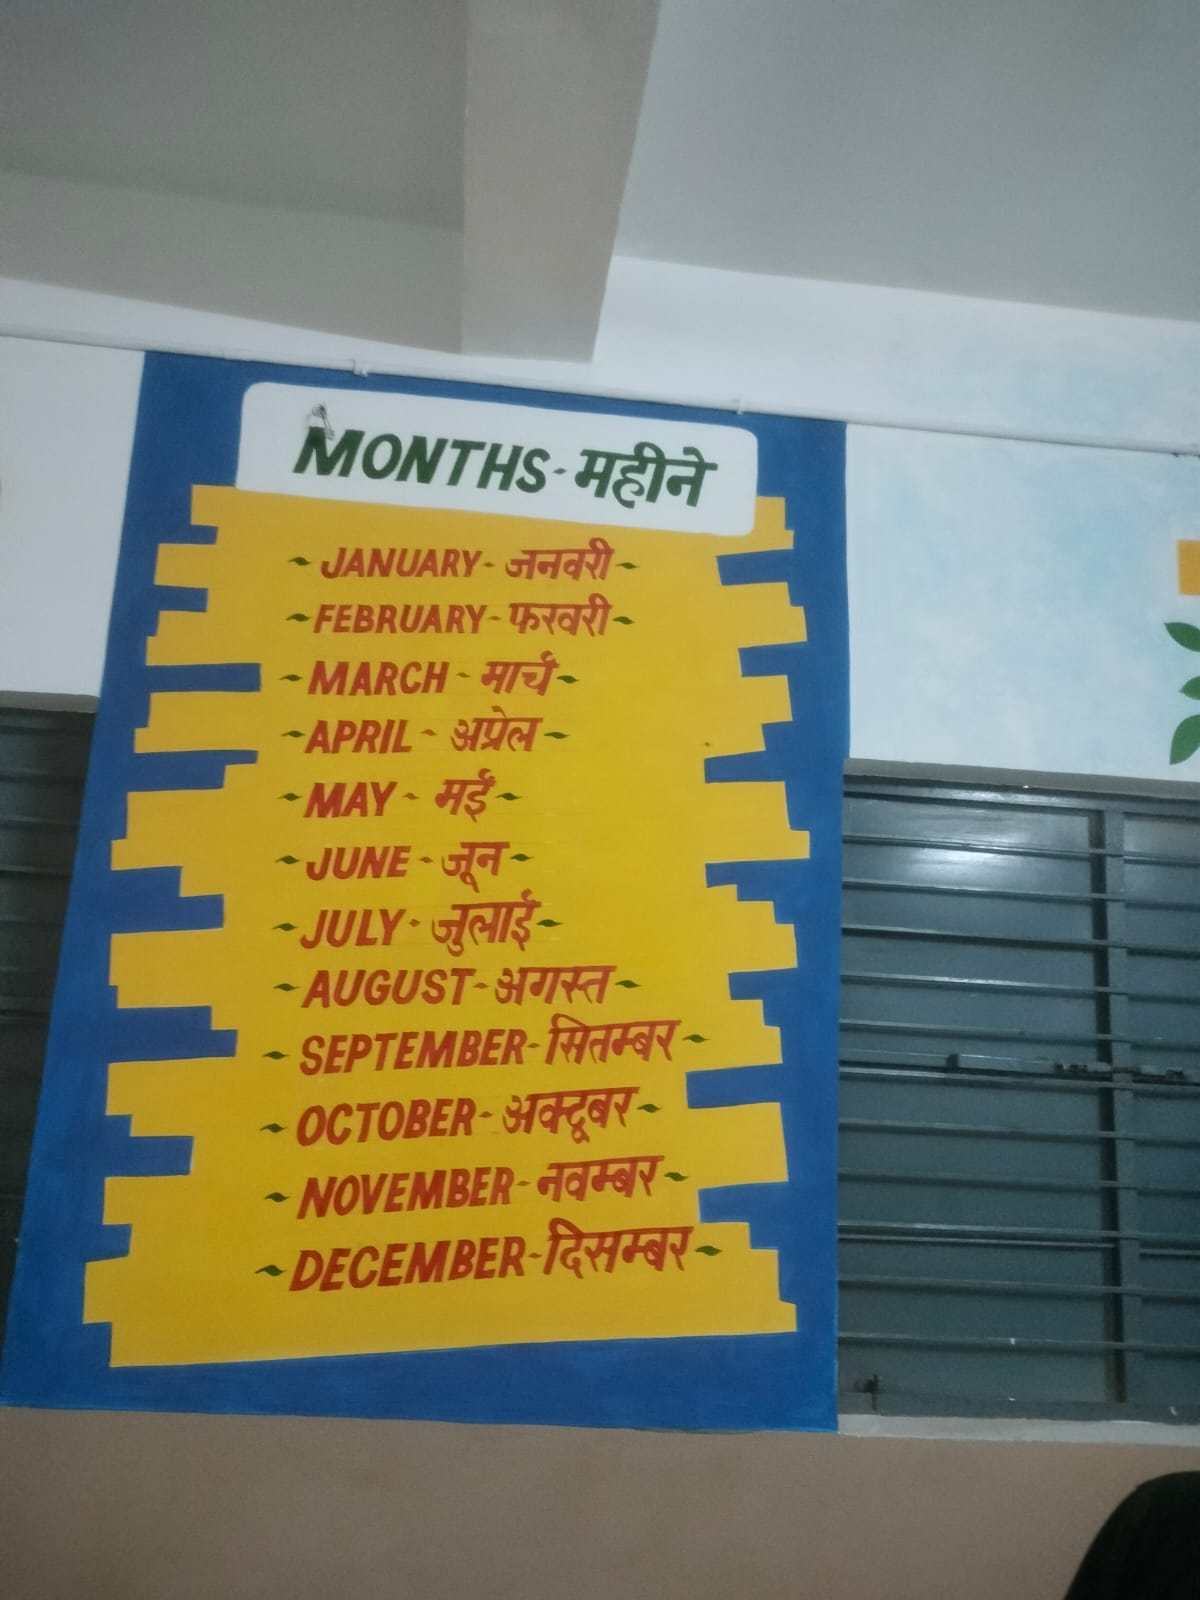 MONTHS - महीने
JANUARY - जनवरी
FEBRUARY - फरवरी
MARCH - मार्च
APRIL - अप्रेल
MAY - मई
JUNE - जून
JULY - जुलाई
AUGUST - अगस्त
SEPTEMBER - सितम्बर
OCTOBER - अक्टूबर
NOVEMBER - नवम्बर
DECEMBER - दिसम्बर